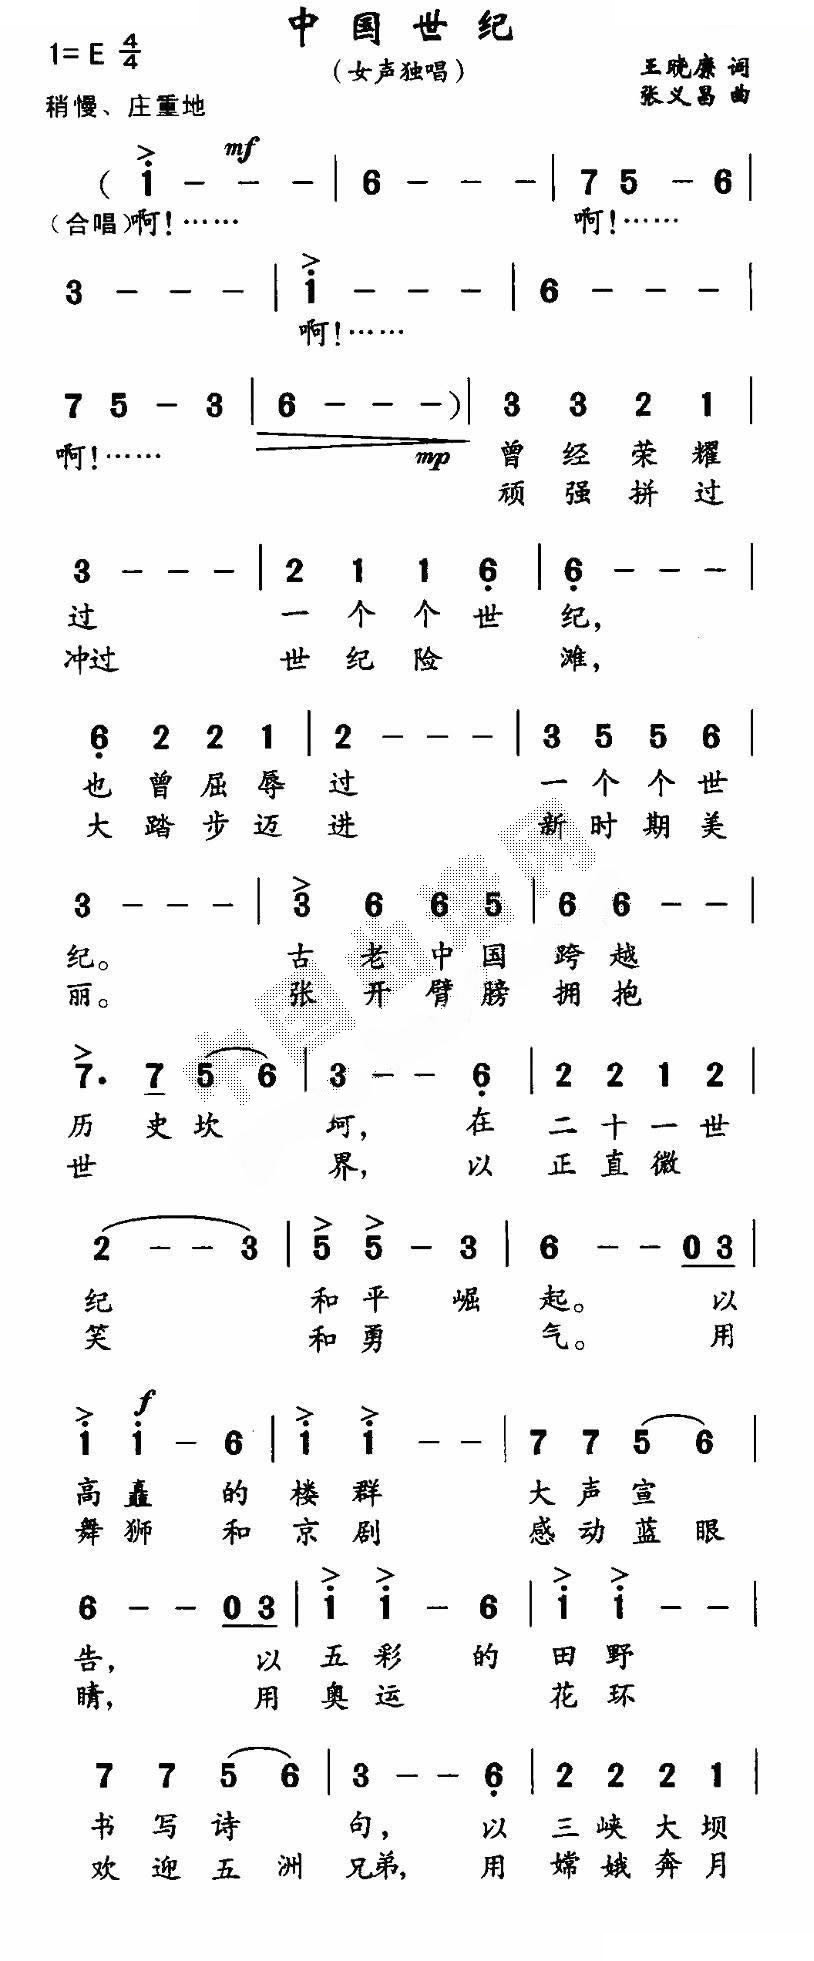 中国世纪
1=E 4/4
（女声独唱）
王晓廉 词
张义昌 曲
稍慢、庄重地
mf
（ 1 - - - | 6 - - - | 7 5 - 6 |
（合唱）啊！…… 啊！……
3 - - - | 1 - - - | 6 - - - |
啊！……
7 5 - 3 | 6 - - - ）| 3 3 2 1 |
啊！…… mp 曾经荣耀
顽强拼过
3 - - - | 2 1 1 6 | 6 - - - |
过 一个个世纪，
冲过 世纪险滩，
6 2 2 1 | 2 - - - | 3 5 5 6 |
也曾屈辱过 一个个世
大踏步迈进 新时期美
3 - - - | 3 6 6 5 | 6 6 - - |
纪。 古老中国跨越
丽。 张开臂膀拥抱
7. 7 5 6 | 3 - - 6 | 2 2 1 2 |
历史坎坷，在二十一世
世界，以正直微
2 - - 3 | 5 5 - 3 | 6 - - 0 3 |
纪 和平崛起。以
笑 和勇气。用
f
1 1 - 6 | 1 1 - - | 7 7 5 6 |
高矗的楼群 大声宣
舞狮和京剧 感动蓝眼
6 - - 0 3 | 1 1 - 6 | 1 1 - - |
告，以五彩的田野
睛，用奥运花环
7 7 5 6 | 3 - - 6 | 2 2 2 1 |
书写诗句，以三峡大坝
欢迎五洲兄弟，用嫦娥奔月